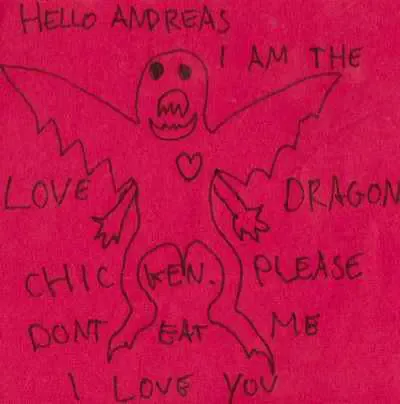 HELLO ANDREAS
I AM THE
LOVE DRAGON
CHICKEN. PLEASE
DONT EAT ME
I LOVE YOU